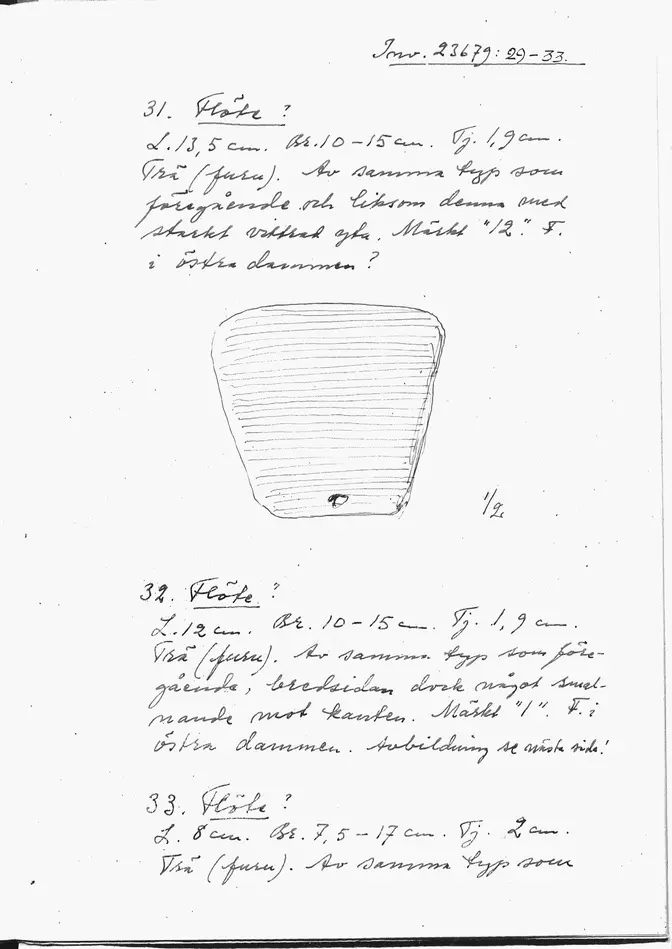 Inv. 23679: 29-33.
31. Flöte ?
L. 13,5 cm. Br. 10-15 cm. Tj. 1,9 cm.
Trä (furu). Av samma typ som
föregående och liksom denna med
starkt vittrad yta. Märkt "12". F.
i östra dammen?
1/2.
32. Flöte ?
L. 12 cm. Br. 10-15 cm. Tj. 1,9 cm.
Trä (furu). Av samma typ som före-
gående, bredsidan dock något smal-
nande mot kanten. Märkt "1". F. i
östra dammen. Avbildning se nästa sida!
33. Flöte ?
L. 8 cm. Br. 7,5-17 cm. Tj. 2 cm.
Trä (furu). Av samma typ som